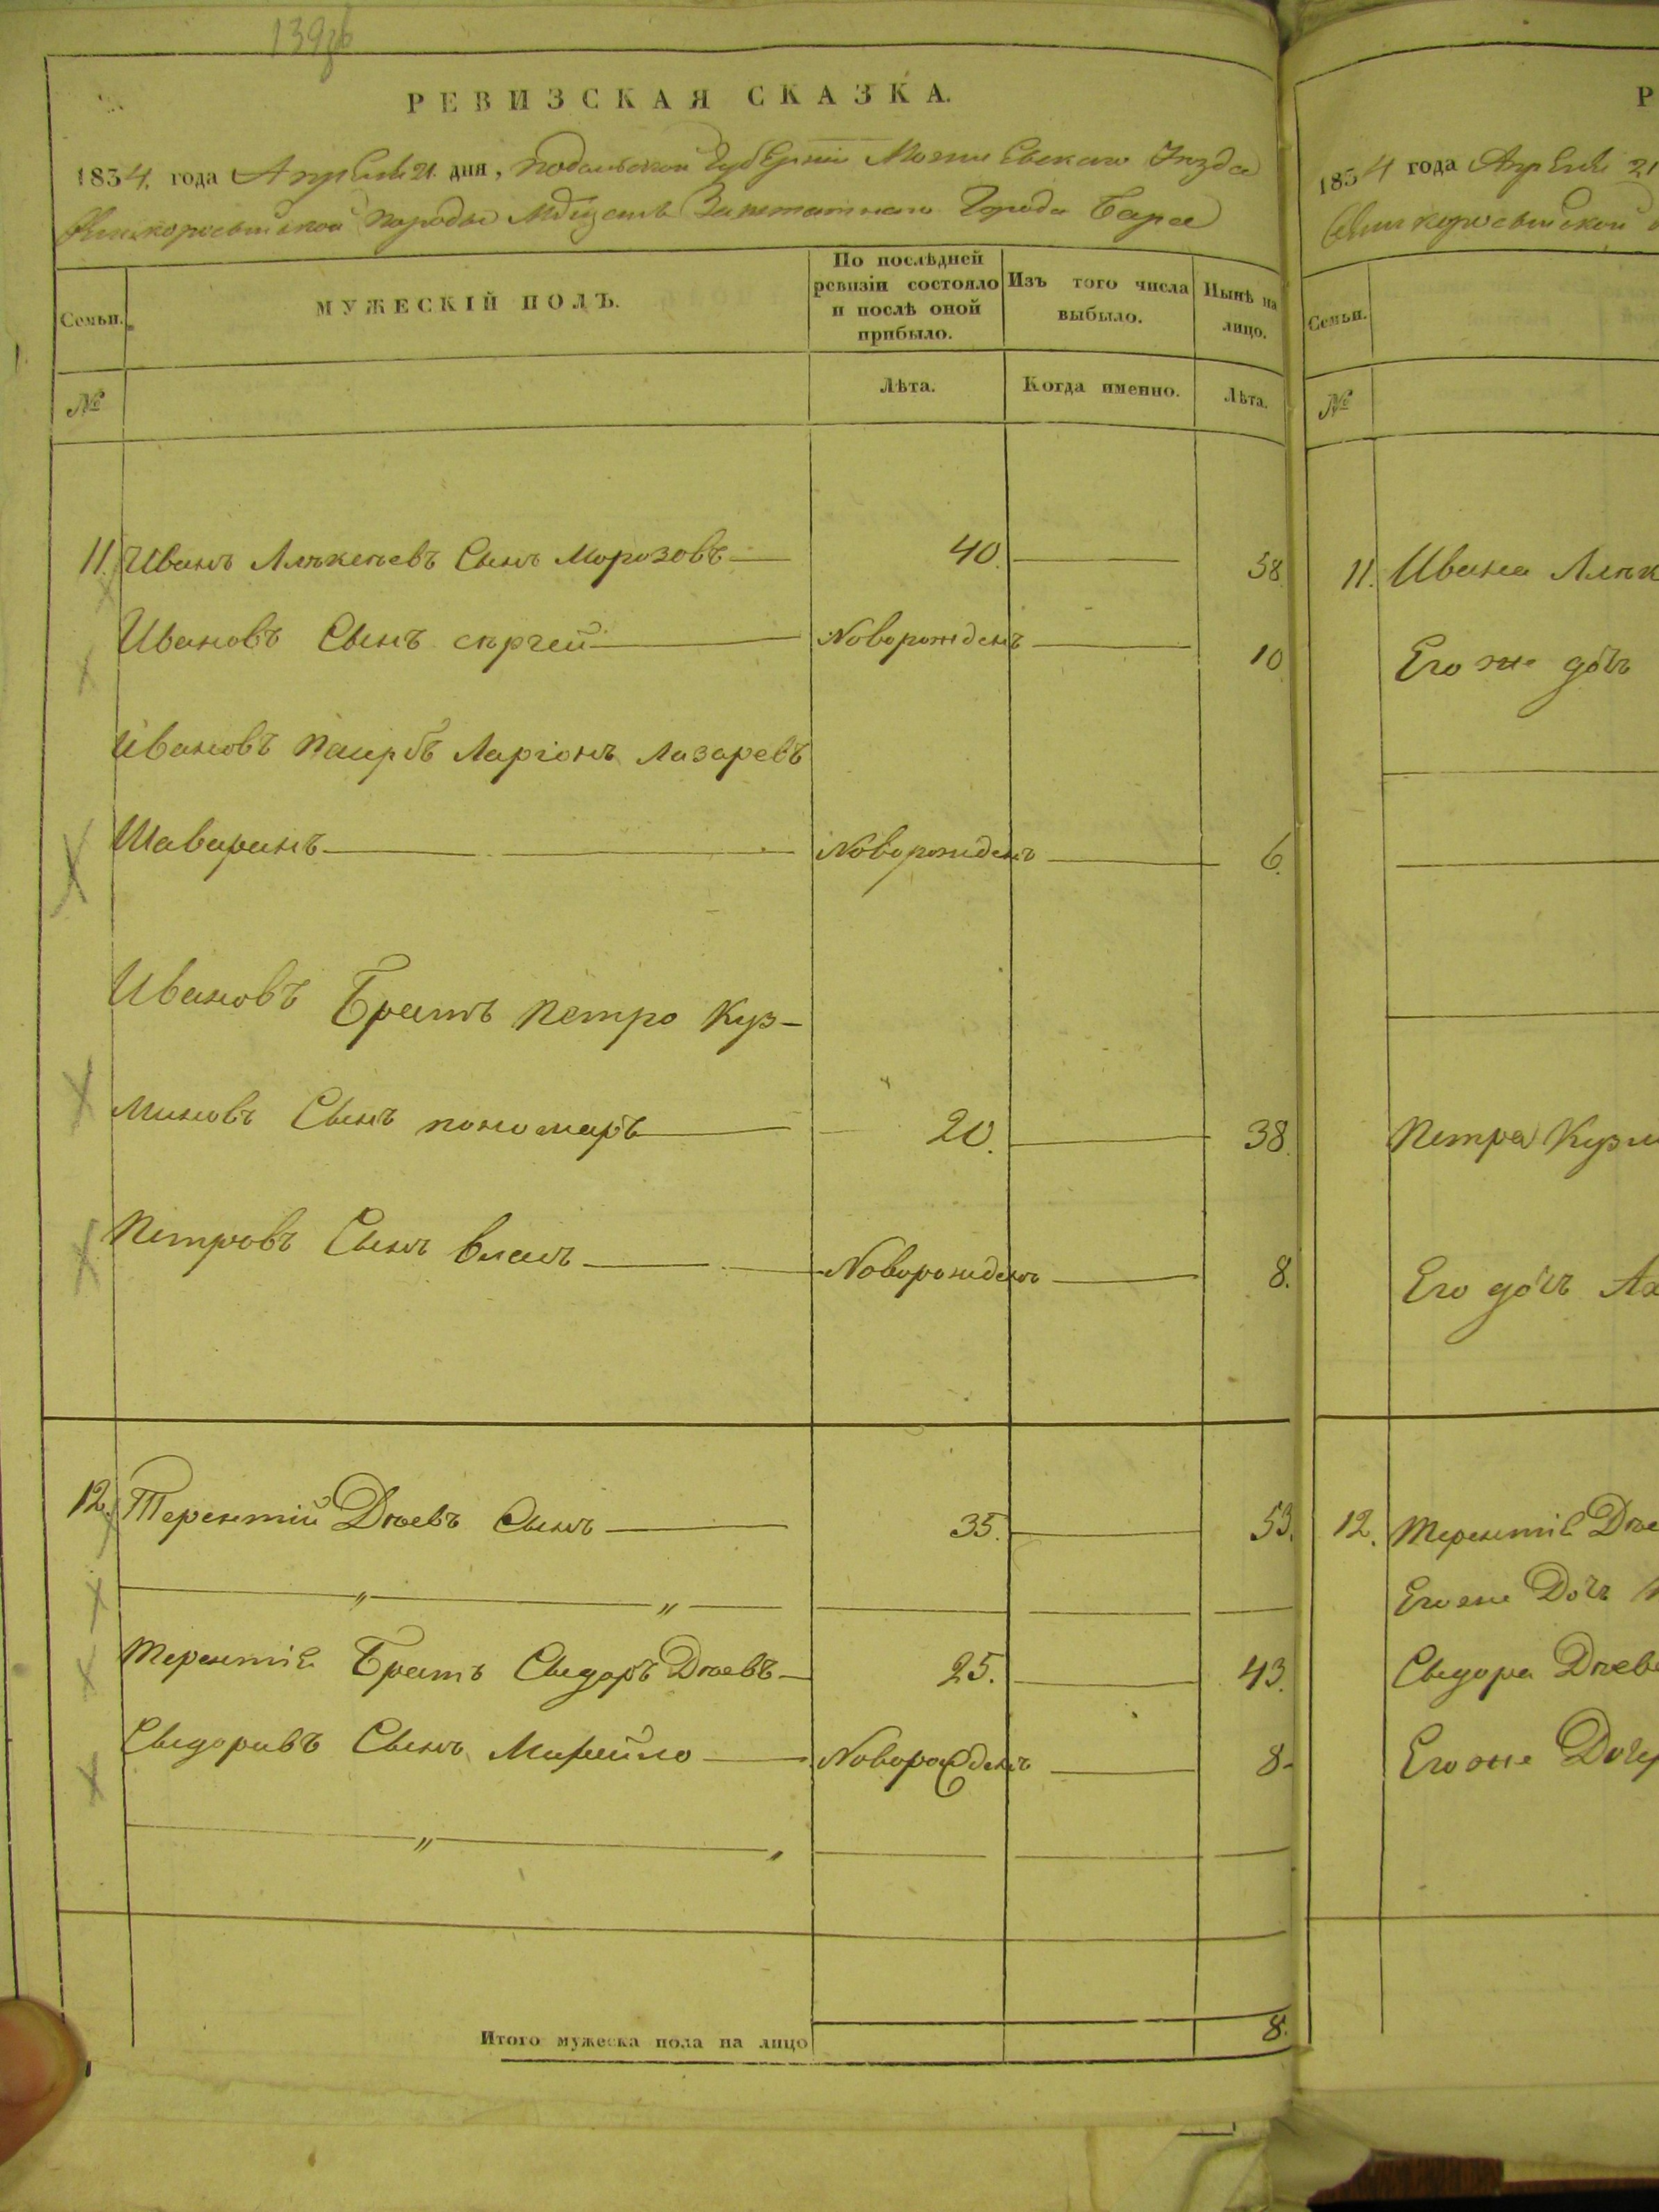 139об
РЕВИЗСКАЯ СКАЗКА.
1834. года Апреля 21 дня, Подольской Губерніи Могилевскаго Уезда
Великоросыйской породы Мѣщанъ Заштатнаго Города Бара
Семьи.
МУЖЕСКІЙ ПОЛЪ.
По послѣдней ревизіи состояло и послѣ оной прибыло.
Изъ того числа выбыло.
Нынѣ на лицо.
№
Лѣта.
Когда именно.
Лѣта.
11. Иванъ Сынъ Морозовъ 40. 58.
Ивановъ Сынъ сѣргей Новорожденъ 10
Ивановъ Ларіонъ Лазаревъ
Шаваринъ Новорожденъ 6.
Ивановъ Братъ Петро Куз-
миновъ Сынъ пономаръ 20. 38.
Петровъ Сынъ власъ Новорожденъ 8.
12. Терентій Сынъ 35. 53.
„ „
Терентіе Братъ Сыдоръ 25. 43.
Сыдоривъ Сынъ Михайло Новорожденъ 8-
„ „
Итого мужеска пола на лицо 8.
Р
1834 года Апреля 21
Великоросыйской
Семьи.
№
11. Ивана
Его же дочъ
Петра Кузм
Его дочъ
12. Терентіе
Его же Дочъ
Сыдора
Его же Дочу